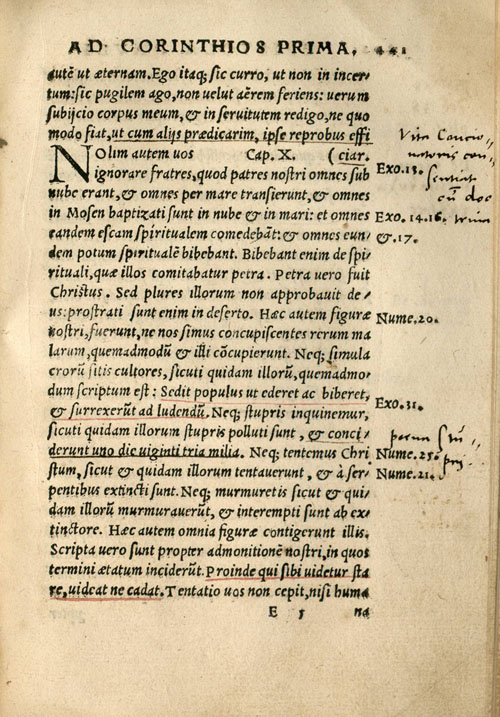 AD CORINTHIOS PRIMA. 441
autē ut æternam. Ego itaq; sic curro, ut non in incer⸗
tum: sic pugilem ago, non uelut aërem feriens: uerum
subijcio corpus meum, & in seruitutem redigo, ne quo
modo fiat, ut cum alijs prædicarim, ipse reprobus effi
NOlim autem uos Cap. X. (ciar.
ignorare fratres, quod patres nostri omnes sub
nube erant, & omnes per mare transierunt, & omnes
in Mosen baptizati sunt in nube & in mari: et omnes
eandem escam spiritualem comedebāt: & omnes eun⸗
dem potum spiritualē bibebant. Bibebant enim de spi⸗
rituali, quæ illos comitabatur petra. Petra uero fuit
Christus. Sed plures illorum non approbauit de⸗
us: prostrati sunt enim in deserto. Hæc autem figuræ
nostri, fuerunt, ne nos simus concupiscentes rerum ma
larum, quemadmodū & illi cōcupierunt. Neq; simula
crorū sitis cultores, sicuti quidam illorū, quemadmo⸗
dum scriptum est: Sedit populus ut ederet ac biberet,
& surrexerūt ad ludendū. Neq; stupris inquinemur,
sicuti quidam illorum stupris polluti sunt, & conci⸗
derunt uno die uiginti tria milia. Neq; tentemus Chri
stum, sicut & quidam illorum tentauerunt, & à ser⸗
pentibus extincti sunt. Neq; murmuretis sicut & qui⸗
dam illorū murmurauerūt, & interempti sunt ab ex⸗
tinctore. Hæc autem omnia figuræ contigerunt illis.
Scripta uero sunt propter admonitionē nostri, in quos
termini ætatum inciderūt. Proinde qui sibi uidetur sta
re, uideat ne cadat. Tentatio uos non cepit, nisi huma
E 5 na
Vita Concio⸗
natoris con⸗
Exo. 13.
sentiat
cū doc
Exo. 14.16. trina
&.17.
Nume. 20.
Exo. 31.
Nume. 25.
Nume. 21.